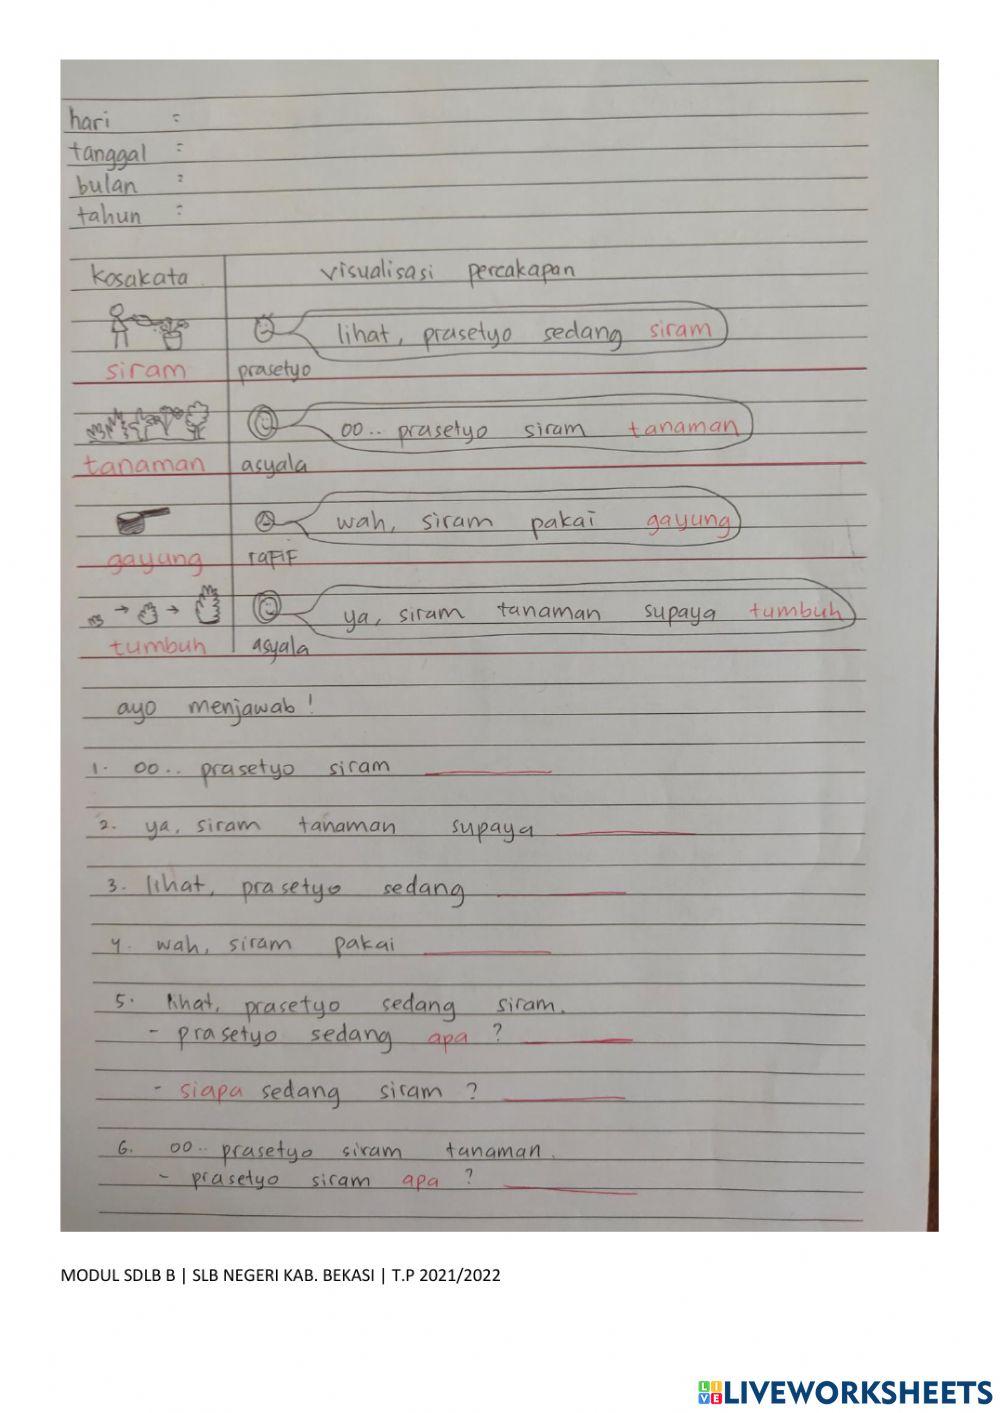 hari :
tanggal :
bulan :
tahun :
kosakata visualisasi percakapan
lihat, prasetyo sedang siram
siram prasetyo
oo.. prasetyo siram tanaman
tanaman asyala
wah, siram pakai gayung
gayung rafif
ya, siram tanaman supaya tumbuh
tumbuh asyala
ayo menjawab!
1. oo.. prasetyo siram
2. ya, siram tanaman supaya
3. lihat, prasetyo sedang
4. wah, siram pakai
5. lihat, prasetyo sedang siram.
- prasetyo sedang apa ?
- siapa sedang siram ?
6. oo.. prasetyo siram tanaman.
- prasetyo siram apa ?
MODUL SDLB B | SLB NEGERI KAB. BEKASI | T.P 2021/2022
LIVE LIVEWORKSHEETS